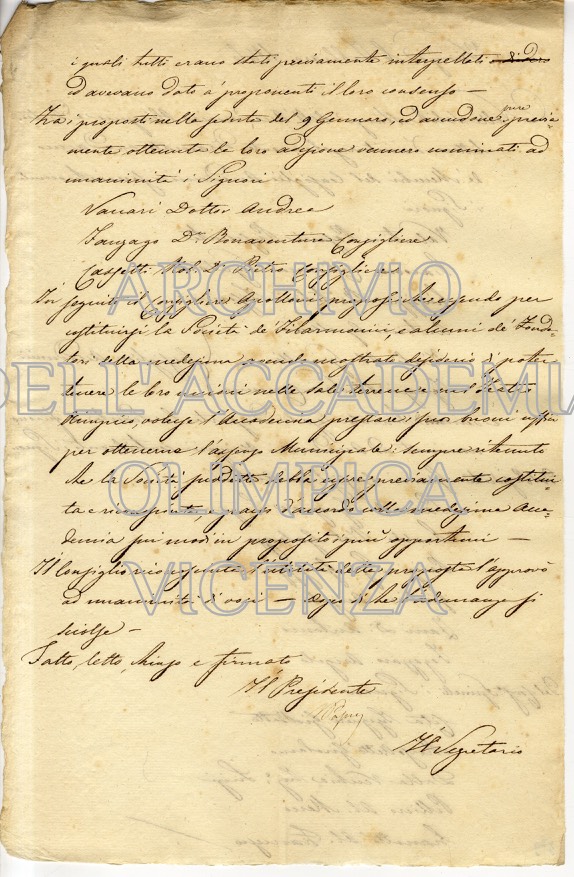 i quali tutti erano stati previamente interpellati
ed avevano dato a' proponenti il loro consenso —
Tra i proposti nella seduta del 9 Gennaro, ed avendone pure previa
mente ottenuta la loro adesione vennero nominati ad
unanimità i Signori
Vaccari Dottor Andrea
Fanzago Dr. Bonaventura Consigliere
Nob. Dr. Pietro Consigliere
In seguito il Consigliere Apolloni propose che essendo per
costituirsi la Società de' Filarmonici, e alcuni de' Fonda-
tori della medesima avendo mostrato desiderio di poter
tenere le loro unioni nelle Sale terrene o nel Teatro
Olimpico, volesse l'Accademia prestare i suoi buoni uffici
per ottenerne l'assenso Municipale: sempre ritenuto
che la Società predetta debba essere previamente costitui-
ta e riconosciuta, e d'accordo colla medesima Acca-
demia pei modi in proposito i più opportuni —
Il Consiglio riconosciuta l'utilità della proposta l'approvò
ad unanimità di voci — Dopo di che l'adunanza si
sciolse —
Fatto, letto, chiuso e firmato
Il Presidente
Il Segretario
ARCHIVIO
DELL'ACCADEMIA
OLIMPICA
VICENZA